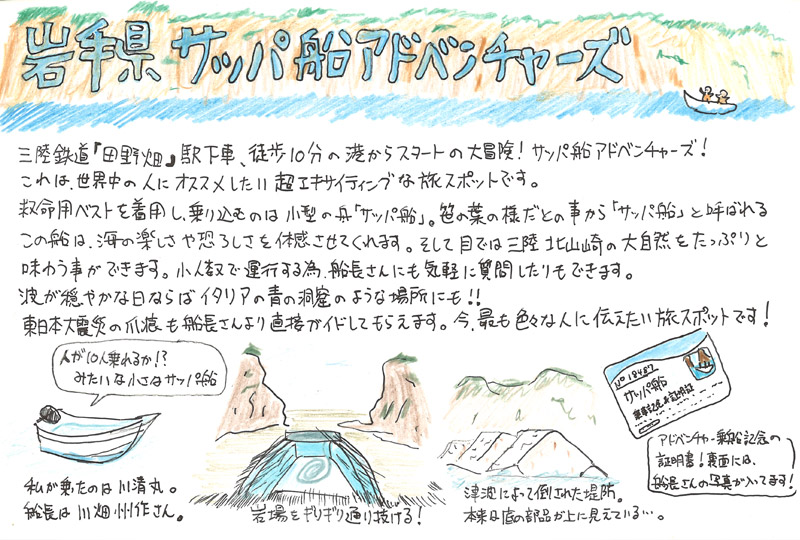 岩手県 サッパ船アドベンチャーズ
三陸鉄道『田野畑』駅下車、徒歩10分の港からスタートの大冒険！サッパ船アドベンチャーズ！
これは、世界中の人にオススメしたい超エキサイティングな旅スポットです。
救命用ベストを着用し、乗り込むのは小型の舟「サッパ船」。笹の葉の様だとの事から「サッパ船」と呼ばれる
この船は、海の楽しさや恐ろしさを体感させてくれます。そして目では三陸 北山崎の大自然をたっぷりと
味わう事ができます。小人数で運行する為、船長さんにも気軽に質問したりもできます。
波が穏やかな日ならばイタリアの青の洞窟のような場所にも!!
東日本大震災の爪痕も船長さんより直接ガイドしてもらえます。今、最も色々な人に伝えたい旅スポットです！
人が10人乗れるか!?
みたいな小さなサッパ船
私が乗たのは川清丸。
船長は川畑州作さん。
岩場をギリギリ通り抜ける！
津波によって倒された堤防。
本来は底の部品が上に見えている…。
No 18487
サッパ船
アドベンチャー乗船記念の
証明書！裏面には、
船長さんの写真が入ってます！